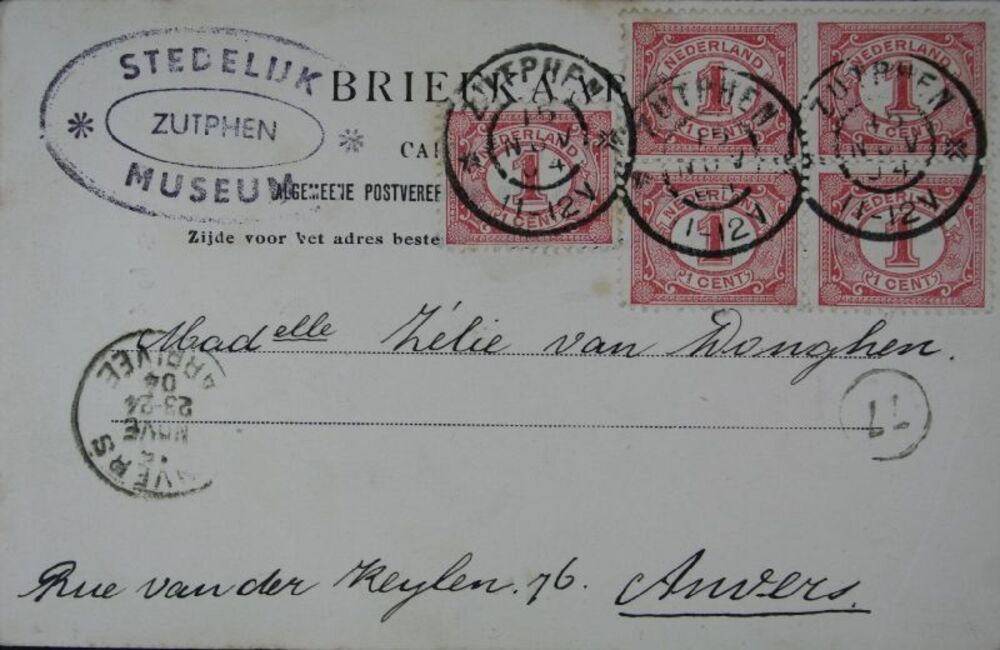 STEDELIJK
ZUTPHEN
MUSEUM
BRIEFKA
ALGEMEENE POSTVEREE
Zijde voor het adres beste
NEDERLAND
1
1 CENT
NEDERLAND
1
1 CENT
NEDERLAND
1
1 CENT
NEDERLAND
1
1 CENT
NEDERLAND
1
1 CENT
ZUTPHEN
NOV
04
11-12V
ZUTPHEN
NOV
11-12V
ZUTPHEN
NOV
04
11-12V
Madelle Zélie van Donghen.
ARRIVEE
04
23-24
NOVE
12
ANVERS
Rue van der Keylen. 76. Anvers.